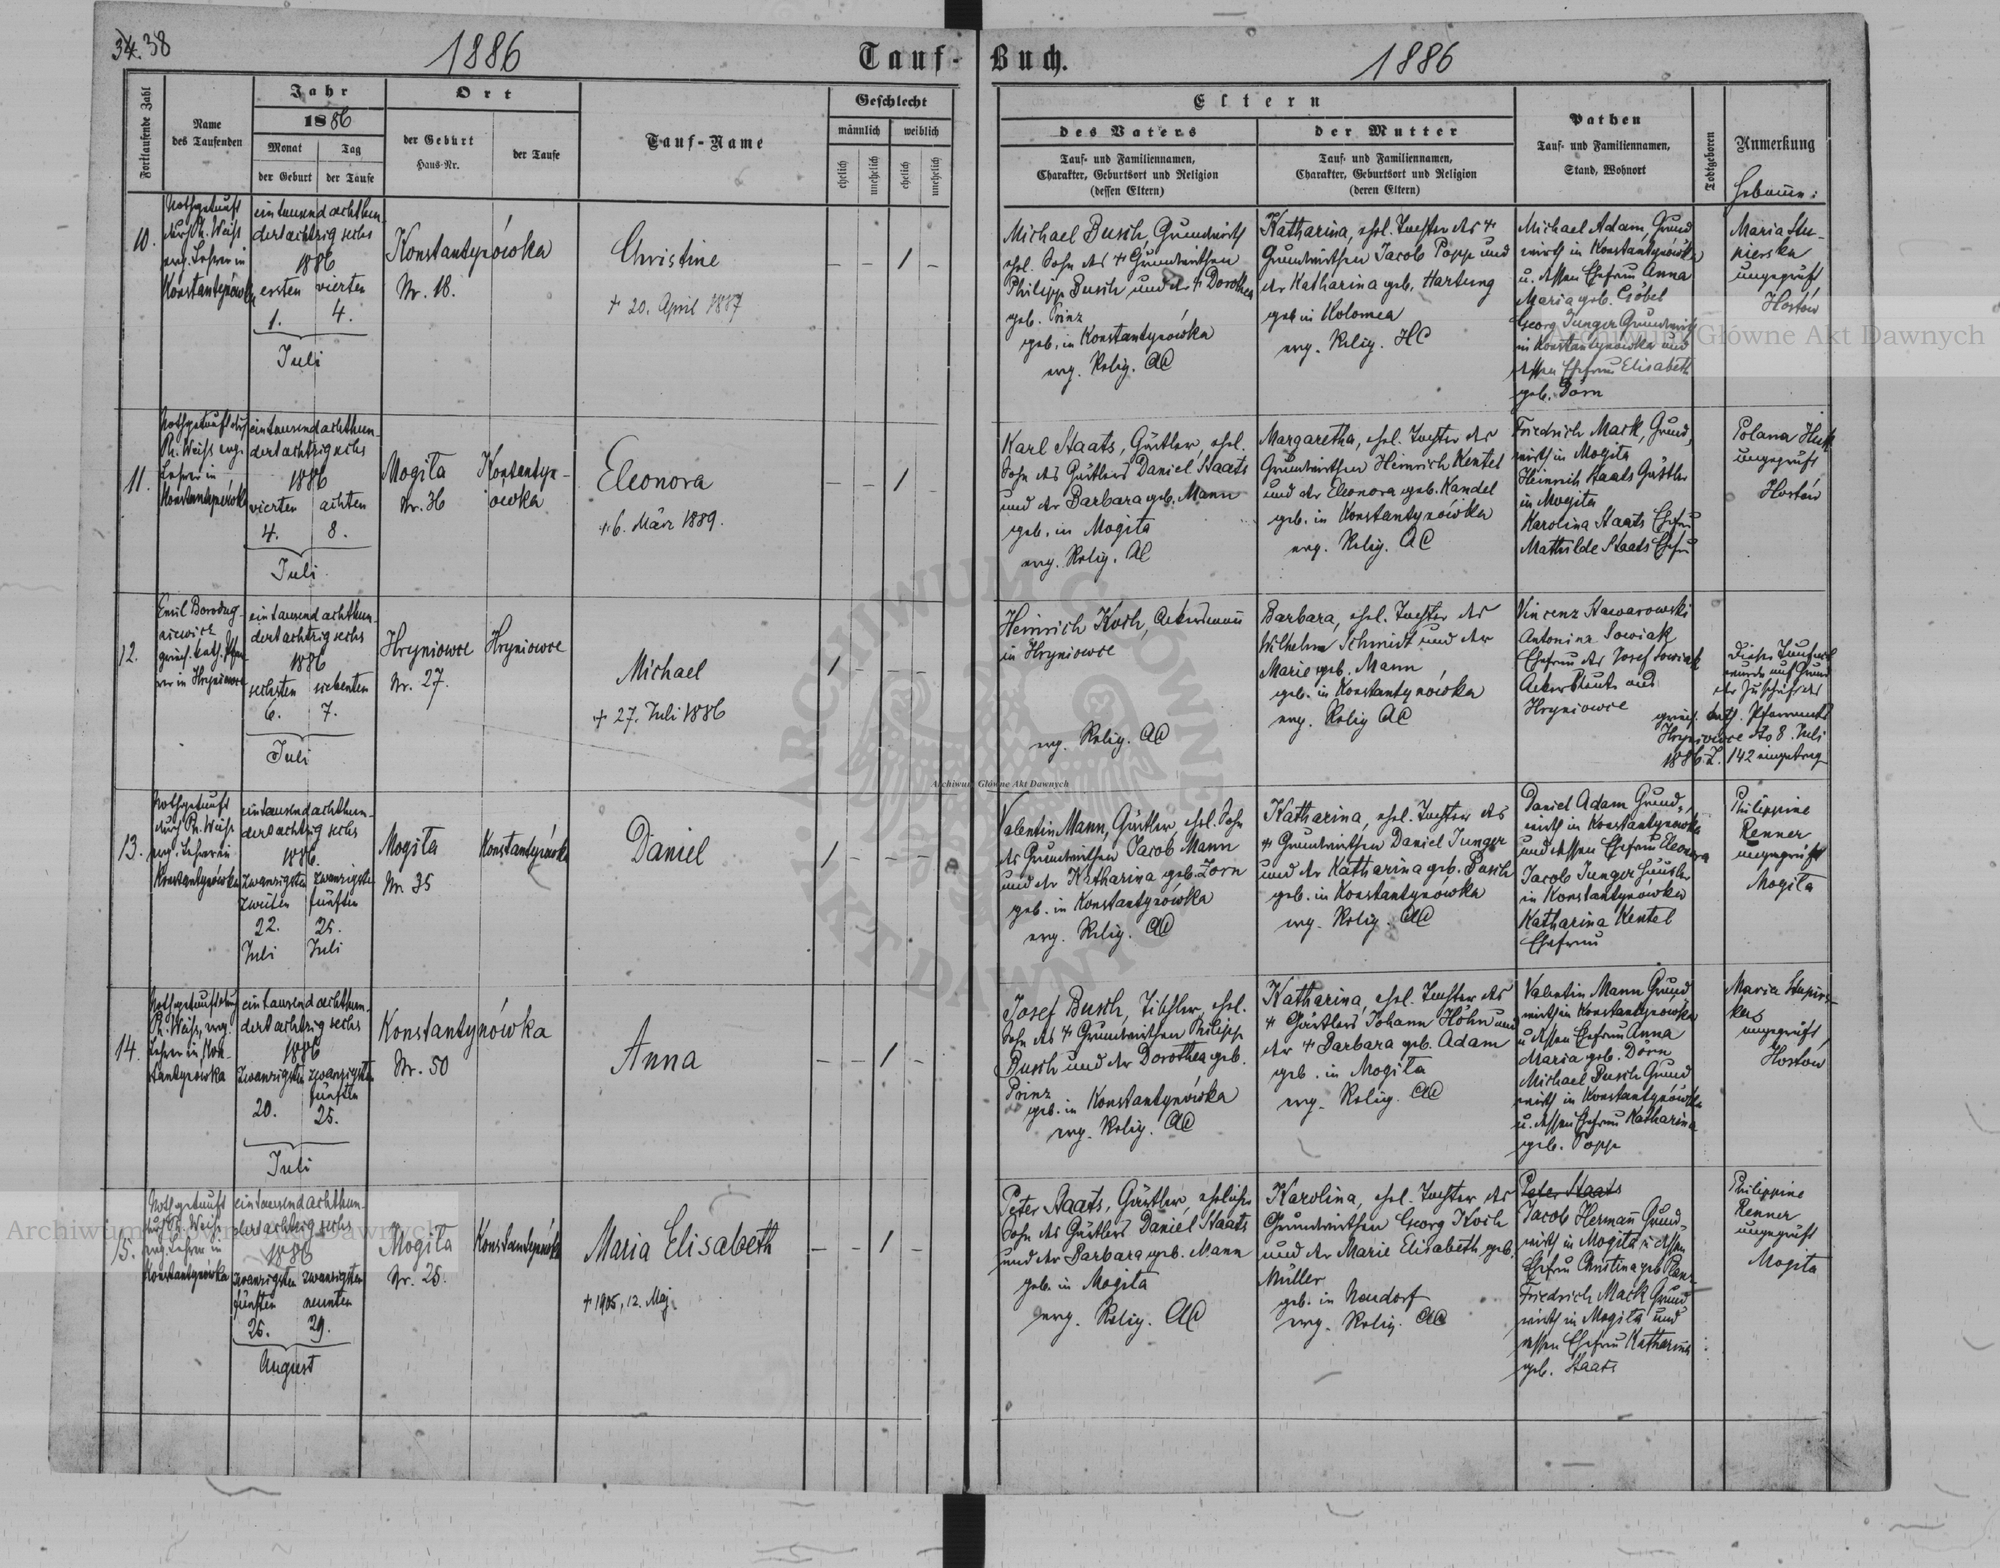 34. 38
1886
Tauf-
Buch.
1886
Fortlaufende Zahl
Name
des Taufenden
Jahr
1886
Monat
Tag
der Geburt
der Taufe
Ort
der Geburt
Haus-Nr.
der Taufe
Tauf-Name
Geschlecht
männlich
weiblich
ehelich
unehelich
ehelich
unehelich
Eltern
des Vaters
der Mutter
Tauf- und Familiennamen,
Charakter, Geburtsort und Religion
(dessen Eltern)
Tauf- und Familiennamen,
Charakter, Geburtsort und Religion
(deren Eltern)
Pathen
Tauf- und Familiennamen,
Stand, Wohnort
Todtgeboren
Anmerkung
10.
Nothgetauft
durch Ph. Weiss
evg. Lehrer in
Konstantynówka
eintausendachthun-
dertachtzigsechs
1886
ersten vierten
1. 4.
Juli
Konstantynówka
Nr. 18.
Christine
+ 20. April 1887
– – 1 –
Michael Busch, Grundwirth
ehel. Sohn des + Grundwirthen
Philipp Busch und der + Dorothea
geb. Prinz
geb. in Konstantynówka
evg. Relig. AC
Katharina, ehel. Tochter des +
Grundwirthen Jacob Popp und
der Katharina geb. Hartung
geb in Kolomea
evg. Relig. HC
Michael Adam, Grund
wirth in Konstantynówka
u. dessen Ehefrau Anna
Maria geb. Göbel
Georg Junger Grundwirth
in Konstantynowka und
dessen Ehefrau Elisabeth
geb. Dörn
Maria Stu-
pierska
ungeprüft
Hostów
11.
Nothgetauft durch
Ph. Weiss evg.
Lehrer in
Konstantynówka
eintausendachthun-
dertachtzigsechs
1886
vierten achten
4. 8.
Juli
Mogiła
Nr. 36
Konstantyn-
ówka
Eleonora
+ 6. März 1889.
– – 1 –
Karl Staats, Gärtler, ehel.
Sohn des Gärtlers Daniel Staats
und der Barbara geb. Mann
geb. in Mogiła
evg. Relig. AC
Margaretha, ehel. Tochter des
Grundwirthen Heinrich Kentel
und der Eleonora geb. Kandel
geb. in Konstantynówka
evg. Relig. AC
Friedrich Mack, Grund,
wirth in Mogiła
Heinrich Staats Gärtler
in Mogiła
Karolina Staats Ehefrau
Mathilde Staats Ehefrau
Polana
ungeprüft
Hostów
12.
Emil
griech. kath. Pfar-
rer in Hryniowce
eintausendachthun-
dertachtzigsechs
1886
sechsten siebenten
6. 7.
Juli
Hryniowce
Nr. 27.
Hryniowce
Michael
+ 27. Juli 1886
1 – – –
Heinrich Koch, Ackersmann
in Hryniowce
evg. Relig. AC
Barbara, ehel. Tochter des
Wilhelm Schmidt und der
Marie geb. Mann
geb. in Konstantynówka
evg. Relig AC
Vincenz Hawarowski
Antonina Sowiak
Ehefrau des Josef Sowiak
Ackersleute aus
Hryniowce
Dieser Taufact
wurde auf Grund
der Zuschrift des
griech. kath. Pfarramts
Hryniowce dto 8. Juli
1886 Z. 142 eingetrag
13.
Nothgetauft
durch Ph. Weiss
evg. Lehrer in
Konstantynówka
eintausendachthun-
dertachtzigsechs
1886
zwanzigsten zwanzigsten
zweiten fünften
22. 25.
Juli Juli
Mogiła
Nr. 35
Konstantynówka
Daniel
1 – – –
Valentin Mann, Gärtler ehel. Sohn
des Grundwirthen Jacob Mann
und der Katharina geb. Zorn
geb. in Konstantynówka
evg. Relig. AC
Katharina, ehel. Tochter des
+ Grundwirthen Daniel Junger
und der Katharina geb. Busch
geb. in Konstantynówka
evg. Relig. AC
Daniel Adam Grund-
wirth in Konstantynówka
und dessen Ehefrau Eleonora
Jacob Junger Häusler
in Konstantynówka
Katharina Kentel
Ehefrau
Philippine
Renner
ungeprüft
Mogiła
14.
Nothgetauft durch
Ph. Weiss, evg.
Lehrer in Kon-
stantynówka
eintausendachthun-
dertachtzigsechs
1886
zwanzigsten zwanzigsten
fünften
20. 25.
Juli
Konstantynówka
Nr. 50
Anna
– – 1 –
Josef Busch, Tischler, ehel.
Sohn des + Grundwirthen Philipp
Busch und der Dorothea geb.
Prinz
geb. in Konstantynówka
evg. Relig. AC
Katharina, ehel. Tochter des
+ Gärtlers Johann Höhn und
der + Barbara geb. Adam
geb. in Mogiła
evg. Relig. AC
Valentin Mann Grund
wirth in Konstantynówka
u dessen Ehefrau Anna
Maria geb. Dörn
Michael Busch Grund
wirth in Konstantynówka
u. dessen Ehefrau Katharina
geb. Popp
Maria
ungeprüft
Hostow
15.
Nothgetauft
durch Ph. Weiss
evg. Lehrer in
Konstantynówka
eintausendachthun-
dertachtzigsechs
1886
zwanzigsten zwanzigsten
fünften neunten
25. 29.
August
Mogiła
Nr. 25.
Konstantynówka
Maria Elisabeth
+ 1905, 12. Maj
– – 1 –
Peter Staats, Gärtler, ehelicher
Sohn des Gärtlers Daniel Staats
und der Barbara geb. Mann
geb. in Mogiła
evg. Relig. AC
Karolina, ehel. Tochter des
Grundwirthen Georg Koch
und der Marie Elisabeth geb.
Müller
geb. in Neudorf
evg. Relig. AC
Peter Staats
Jacob Hermann Grund-
wirth in Mogiła u dessen
Ehefrau Christina geb
Friedrich Mack Grund
wirth in Mogiła und
dessen Ehefrau Katharina
geb. Staats
Philippine
Renner
ungeprüft
Mogiła
Archiwum Główne Akt Dawnych
Archiwum Główne Akt Dawnych
Archiwum Główne Akt Dawnych
ARCHIWUM GŁÓWNE AKT DAWNYCH